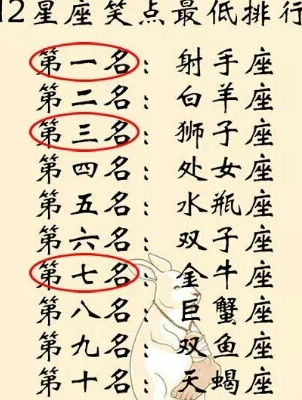 12星座笑点最低排行
第一名：射手座
第二名：白羊座
第三名：狮子座
第四名：处女座
第五名：水瓶座
第六名：双子座
第七名：金牛座
第八名：巨蟹座
第九名：双鱼座
第十名：天蝎座